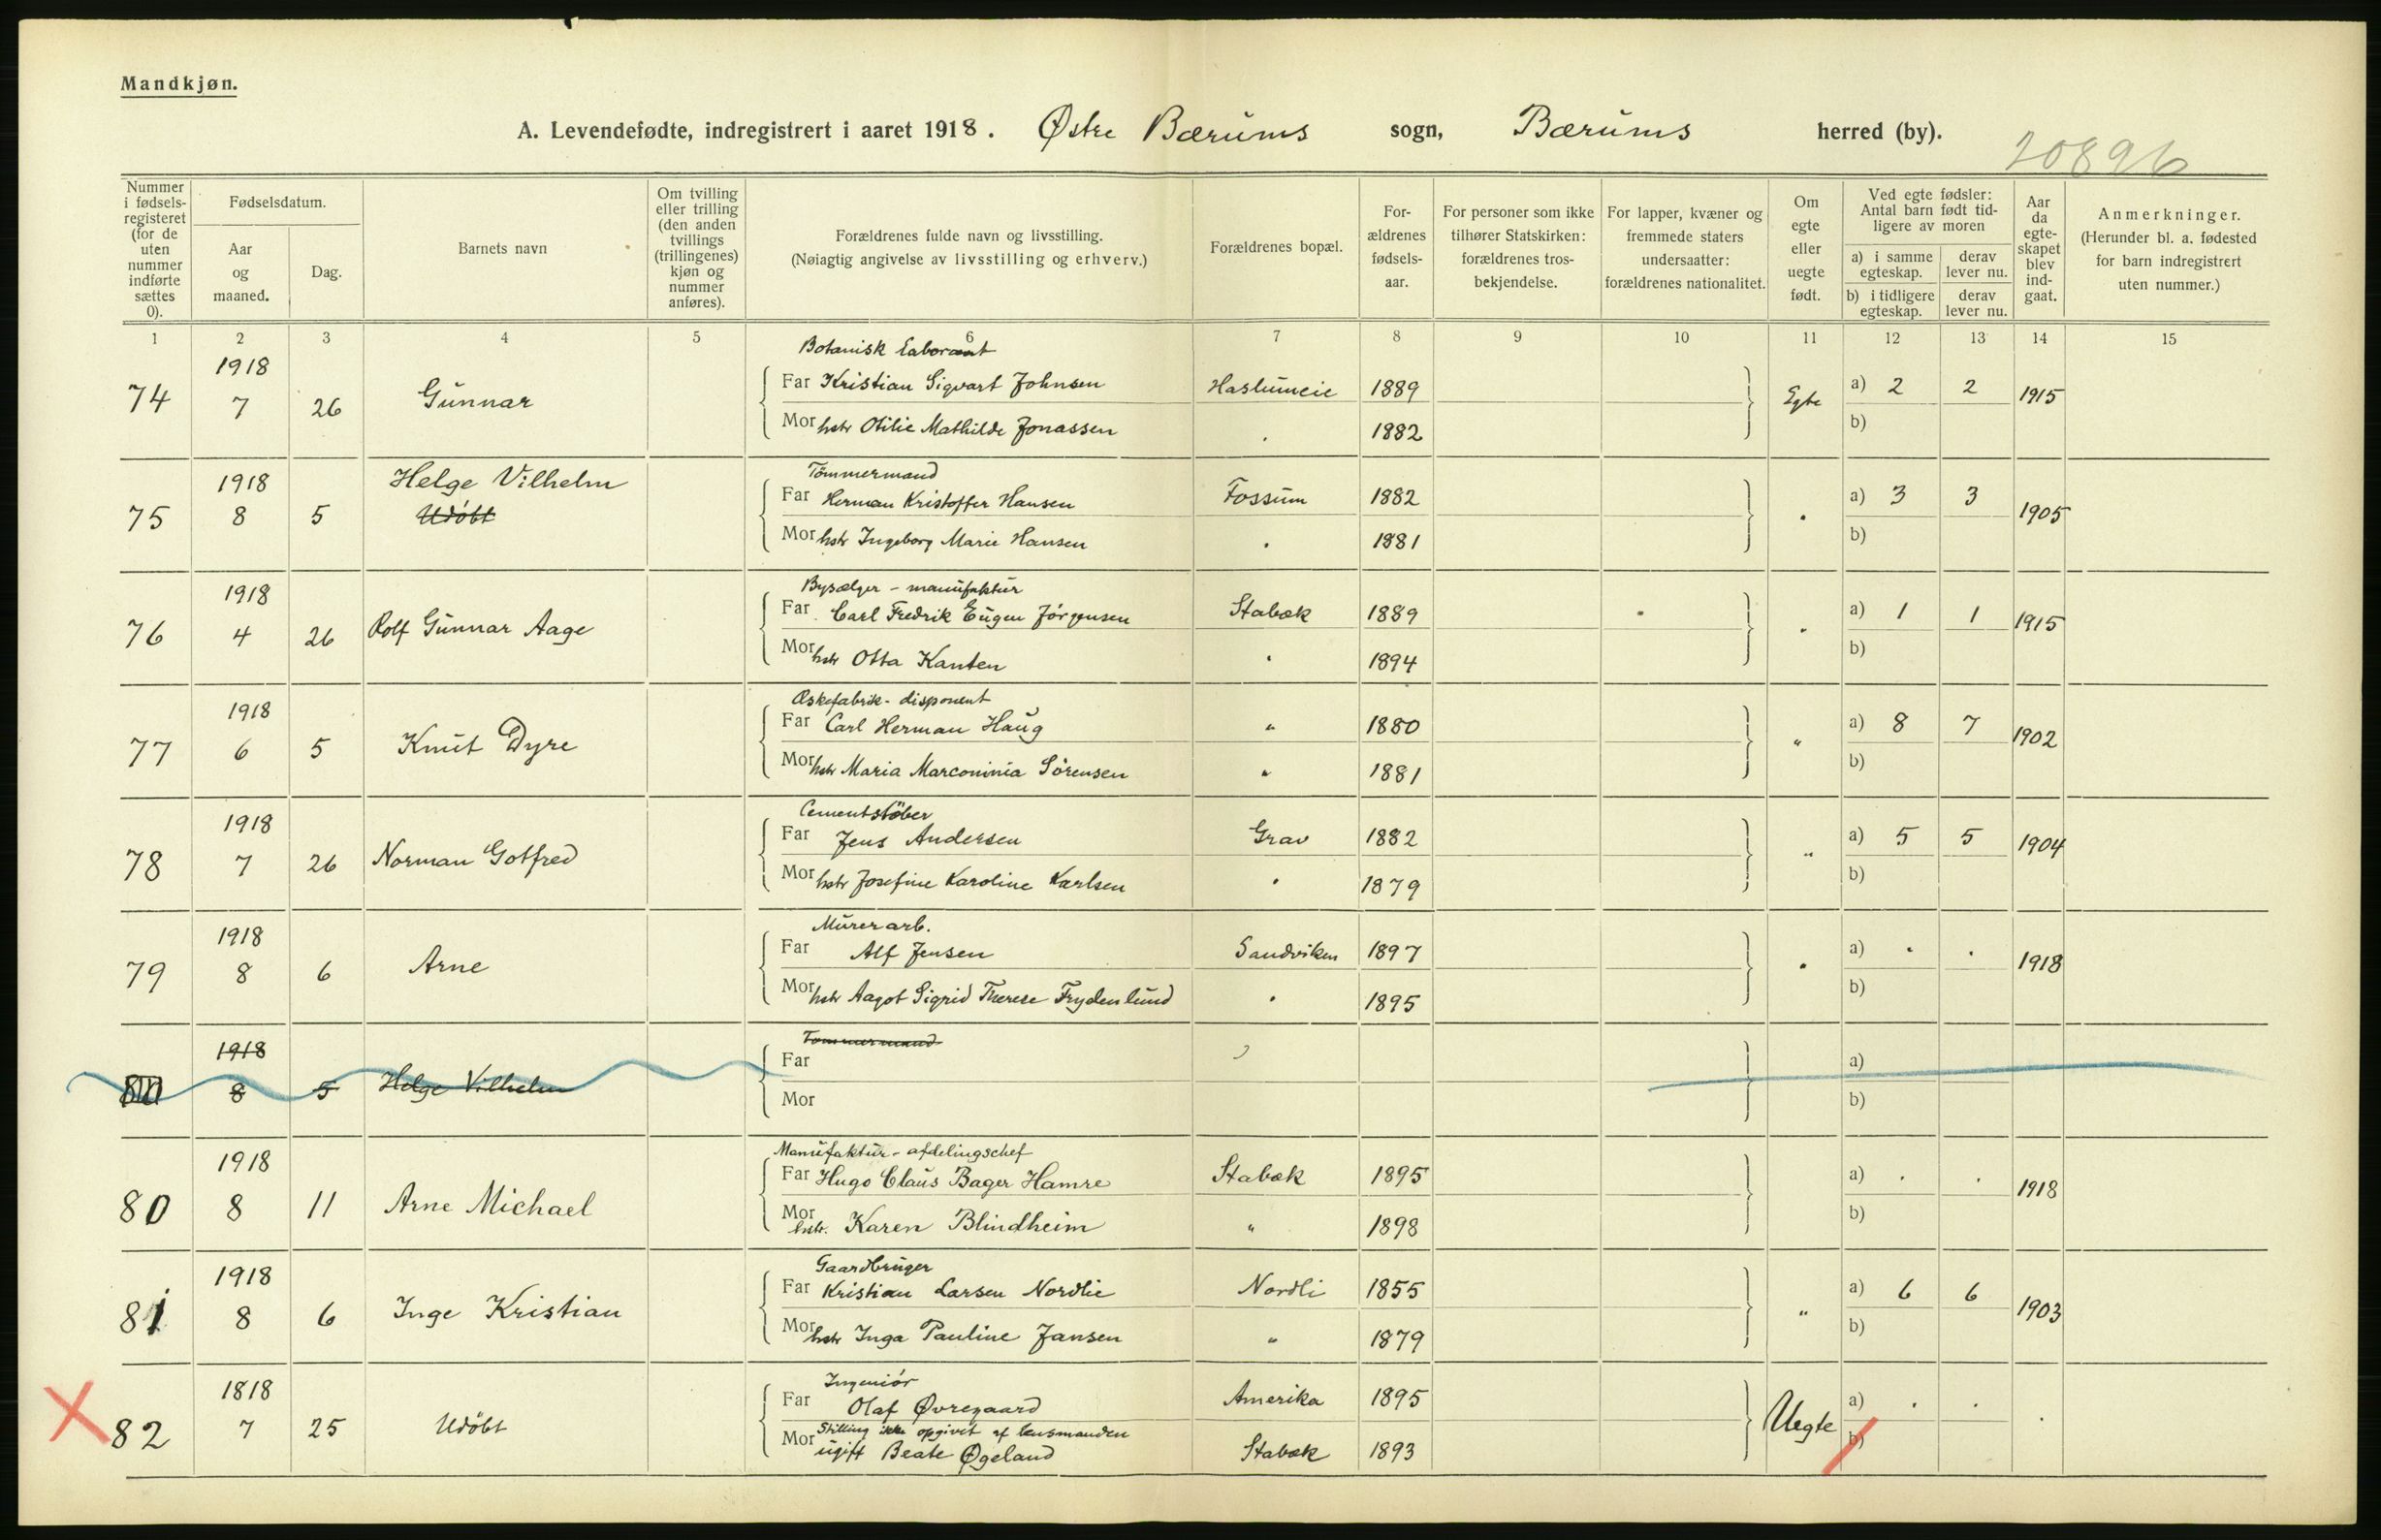 Mandkjøn.
A. Levendefødte, indregistrert i aaret 1918. Østre Bærums sogn, Bærums herred (by).
20896
Nummer i fødsels-registeret (for de uten nummer indførte sættes 0).
Fødselsdatum.
Aar og maaned.
Dag.
Barnets navn
Om tvilling eller trilling (den anden tvillings (trillingenes) kjøn og nummer anføres).
Forældrenes fulde navn og livsstilling.
(Nøiagtig angivelse av livsstilling og erhverv.)
Forældrenes bopæl.
For-ældrenes fødsels-aar.
For personer som ikke tilhører Statskirken: forældrenes tros-bekjendelse.
For lapper, kvæner og fremmede staters undersaatter: forældrenes nationalitet.
Om egte eller uegte født.
Ved egte fødsler: Antal barn født tid-ligere av moren
a) i samme egteskap.
derav lever nu.
b) i tidligere egteskap.
derav lever nu.
Aar da egte-skapet blev ind-gaat.
Anmerkninger.
(Herunder bl. a. fødested for barn indregistrert uten nummer.)
1 2 3 4 5 6 7 8 9 10 11 12 13 14 15
Botanisk Laborant
1918
74 7 26 Gunnar Far Kristian Sigvart Johnsen Haslumeie 1889 Egte a) 2 2 1915
Mor hstr Otilie Mathilde Jonassen 1882 b)
Tömmermand
1918 Helge Vilhelm
75 8 5 Udöbt Far Herman Kristoffer Hansen Fossum 1882 a) 3 3 1905
Mor hstr Ingeborg Marie Hansen 1881 b)
Bysælger - manufaktur
1918
76 4 26 Rolf Gunnar Aage Far Carl Fredrik Eugen Jörgensen Stabæk 1889 a) 1 1 1915
Mor hstr Otta Kanten 1894 b)
Æskefabrik - disponent
1918
77 6 5 Knut Dyre Far Carl Herman Haug " 1880 " a) 8 7 1902
Mor hstr Maria Marconinia Sörensen " 1881 b)
Cementstöber
1918
78 7 26 Norman Gotfred Far Jens Andersen Grav 1882 " a) 5 5 1904
Mor hstr Josefine Karoline Karlsen 1879 b)
Murerarb.
1918
79 8 6 Arne Far Alf Jensen Sandviken 1897 a) . . 1918
Mor hstr Aagot Sigrid Therese Frydenlund 1895 b)
Tommermand
1918
80 8 5 Helge Vilhelm Far a)
Mor b)
Manufaktur - afdelingschef
1918
80 8 11 Arne Michael Far Hugo Claus Bager Hamre Stabæk 1895 a) . . 1918
Mor hstr. Karen Blindheim " 1898 b)
Gaardbruger
1918
81 8 6 Inge Kristian Far Kristian Larsen Nordlie Nordli 1855 " a) 6 6 1903
Mor hstr Inga Pauline Jansen " 1879 b)
Ingeniör
1818
82 7 25 Udöbt Far Olaf Øvregaard Amerika 1895 Uegte a) . . .
Stilling ikke opgivet af lensmanden
Mor ugift Beate Øgeland Stabæk 1893 b)